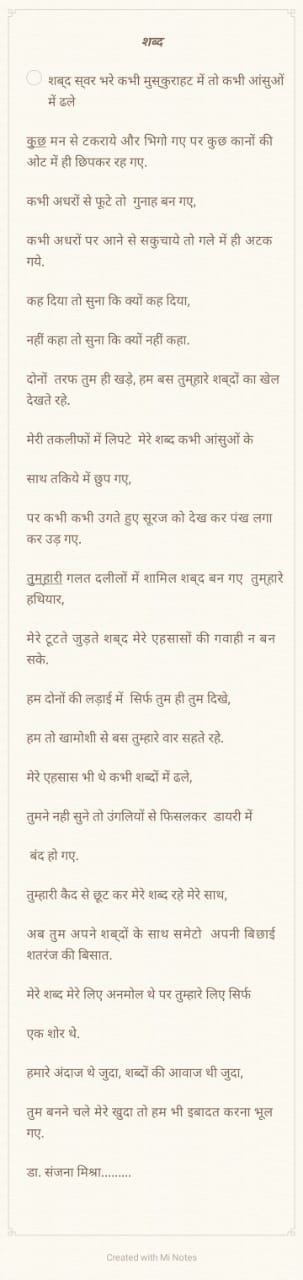 शब्द
शब्द स्वर भरे कभी मुस्कुराहट में तो कभी आंसुओं
में ढले
कुछ मन से टकराये और भिगो गए पर कुछ कानों की
ओट में ही छिपकर रह गए.
कभी अधरों से फूटे तो गुनाह बन गए,
कभी अधरों पर आने से सकुचाये तो गले में ही अटक
गये.
कह दिया तो सुना कि क्यों कह दिया,
नहीं कहा तो सुना कि क्यों नहीं कहा.
दोनों तरफ तुम ही खड़े, हम बस तुम्हारे शब्दों का खेल
देखते रहे.
मेरी तकलीफों में लिपटे मेरे शब्द कभी आंसुओं के
साथ तकिये में छुप गए,
पर कभी कभी उगते हुए सूरज को देख कर पंख लगा
कर उड़ गए.
तुम्हारी गलत दलीलों में शामिल शब्द बन गए तुम्हारे
हथियार,
मेरे टूटते जुड़ते शब्द मेरे एहसासों की गवाही न बन
सके.
हम दोनों की लड़ाई में सिर्फ तुम ही तुम दिखे,
हम तो खामोशी से बस तुम्हारे वार सहते रहे.
मेरे एहसास भी थे कभी शब्दों में ढले,
तुमने नही सुने तो उंगलियों से फिसलकर डायरी में
बंद हो गए.
तुम्हारी कैद से छूट कर मेरे शब्द रहे मेरे साथ,
अब तुम अपने शब्दों के साथ समेटो अपनी बिछाई
शतरंज की बिसात.
मेरे शब्द मेरे लिए अनमोल थे पर तुम्हारे लिए सिर्फ
एक शोर थे.
हमारे अंदाज थे जुदा, शब्दों की आवाज थी जुदा,
तुम बनने चले मेरे खुदा तो हम भी इबादत करना भूल
गए.
डा. संजना मिश्रा.........
Created with Mi Notes